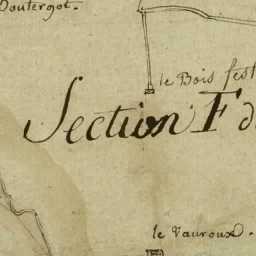 Doutergot.
le Bois fest
Section F d
le Vauroux.